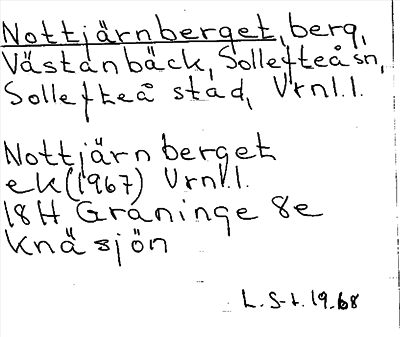 Nottjärnberget, berg,
Västanbäck, Sollefteå sn,
Sollefteå stad, Vrnl.l.
Nottjärnberget
ek (1967) Vrnl.l.
18H Graninge 8e
Knäsjön
L. S-t. 19.68